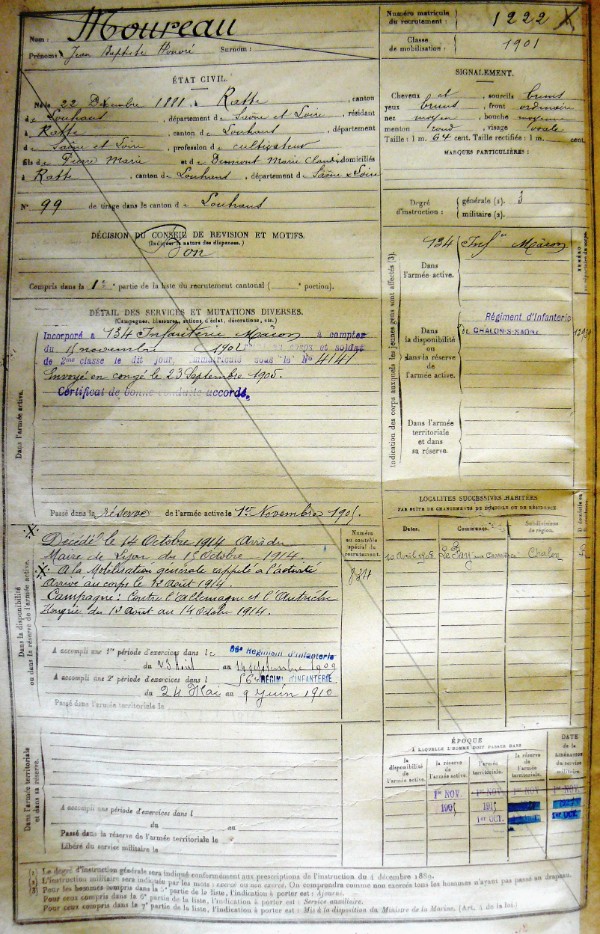 Nom : Moureau
Prénoms : Jean Baptiste Honoré Surnom :
Numéro matricule du recrutement : 1222
Classe de mobilisation : 1901
ÉTAT CIVIL.
Né le 22 Décembre 1881, à Ratte, canton
de Louhans, département de Saône et Loire, résidant
à Ratte, canton de Louhans, département
de Saône et Loire, profession de cultivateur
fils de Pierre Marie et de Marie Claudine domiciliés
à Ratte, canton de Louhans, département de Saône et Loire
N° 99 de tirage dans le canton de Louhans
SIGNALEMENT.
Cheveux et sourcils bruns
yeux bruns, front ordinaire
nez moyen, bouche moyenne
menton rond, visage ovale
Taille : 1 m. 64 cent. Taille rectifiée : 1 m. cent.
MARQUES PARTICULIÈRES :
Degré d'instruction : générale (1). 3
militaire (2).
DÉCISION DU CONSEIL DE REVISION ET MOTIFS.
(Indiquer la nature des dispenses.)
Bon
Compris dans la 1re partie de la liste du recrutement cantonal ( portion).
DÉTAIL DES SERVICES ET MUTATIONS DIVERSES.
(Campagnes, blessures, actions d'éclat, décorations, etc.)
Incorporé à 134 Infanterie Mâcon à compter
du 15 novembre 1902 et soldat
de 2me classe le dit jour, immatriculé sous le N° 4141
Envoyé en congé le 23 Septembre 1905.
Certificat de bonne conduite accordé.
Dans l'armée active.
Passé dans la réserve de l'armée active le 1er Novembre 1905.
Indication des corps auxquels les jeunes gens sont affectés (3).
Dans l'armée active.
134 Infie Mâcon
Dans la disponibilité ou dans la réserve de l'armée active.
Régiment d'Infanterie
de CHALON-S-SAÔNE
Dans l'armée territoriale et dans sa réserve.
Décédé le 14 Octobre 1914 Avis du
Maire de du 15 Octobre 1914.
A la Mobilisation générale rappelé à l'activité
Arrivé au corps le 12 Août 1914
Campagne : Contre l'Allemagne et l'Autriche
Hongrie du 12 Août au 14 Octobre 1914.
Numéro au contrôle spécial du recrutement.
Dans la disponibilité ou dans la réserve de l'armée active.
A accompli une 1re période d'exercices dans le 56e Régiment d'Infanterie
du au Septembre 1909
A accompli une 2e période d'exercices dans l 56e RÉGIMT D'INFANTERIE
du 24 Mai au 9 Juin 1910
Passé dans l'armée territoriale le
LOCALITÉS SUCCESSIVES HABITÉES
PAR SUITE DE CHANGEMENTS DE DOMICILE OU DE RÉSIDENCE
Dates. Communes. Subdivisions de région.
Chalon
ÉPOQUE
À LAQUELLE L'HOMME DOIT PASSER DANS
la disponibilité de l'armée active. la réserve de l'armée active. l'armée territoriale. la réserve de l'armée territoriale.
DATE de la libération du service militaire.
1er NOV. 1er NOV. 1er NOV. 1er NOV.
1905
1er OCT. 1er OCT.
Dans l'armée territoriale et dans sa réserve.
A accompli une période d'exercices dans l
du au
Passé dans la réserve de l'armée territoriale le
Libéré du service militaire le
(1) Le degré d'instruction générale sera indiqué conformément aux prescriptions de l'instruction du 4 décembre 1889.
(2) L'instruction militaire sera indiquée par les mots exercé ou non exercé. On comprendra comme non exercés tous les hommes n'ayant pas passé au drapeau.
Pour ceux compris dans la 6e partie de la liste, l'indication à porter est : Service auxiliaire.
Pour ceux compris dans la 7e partie de la liste, l'indication à porter est : Mis à la disposition du Ministre de la Marine. (Art. 4 de la loi.)